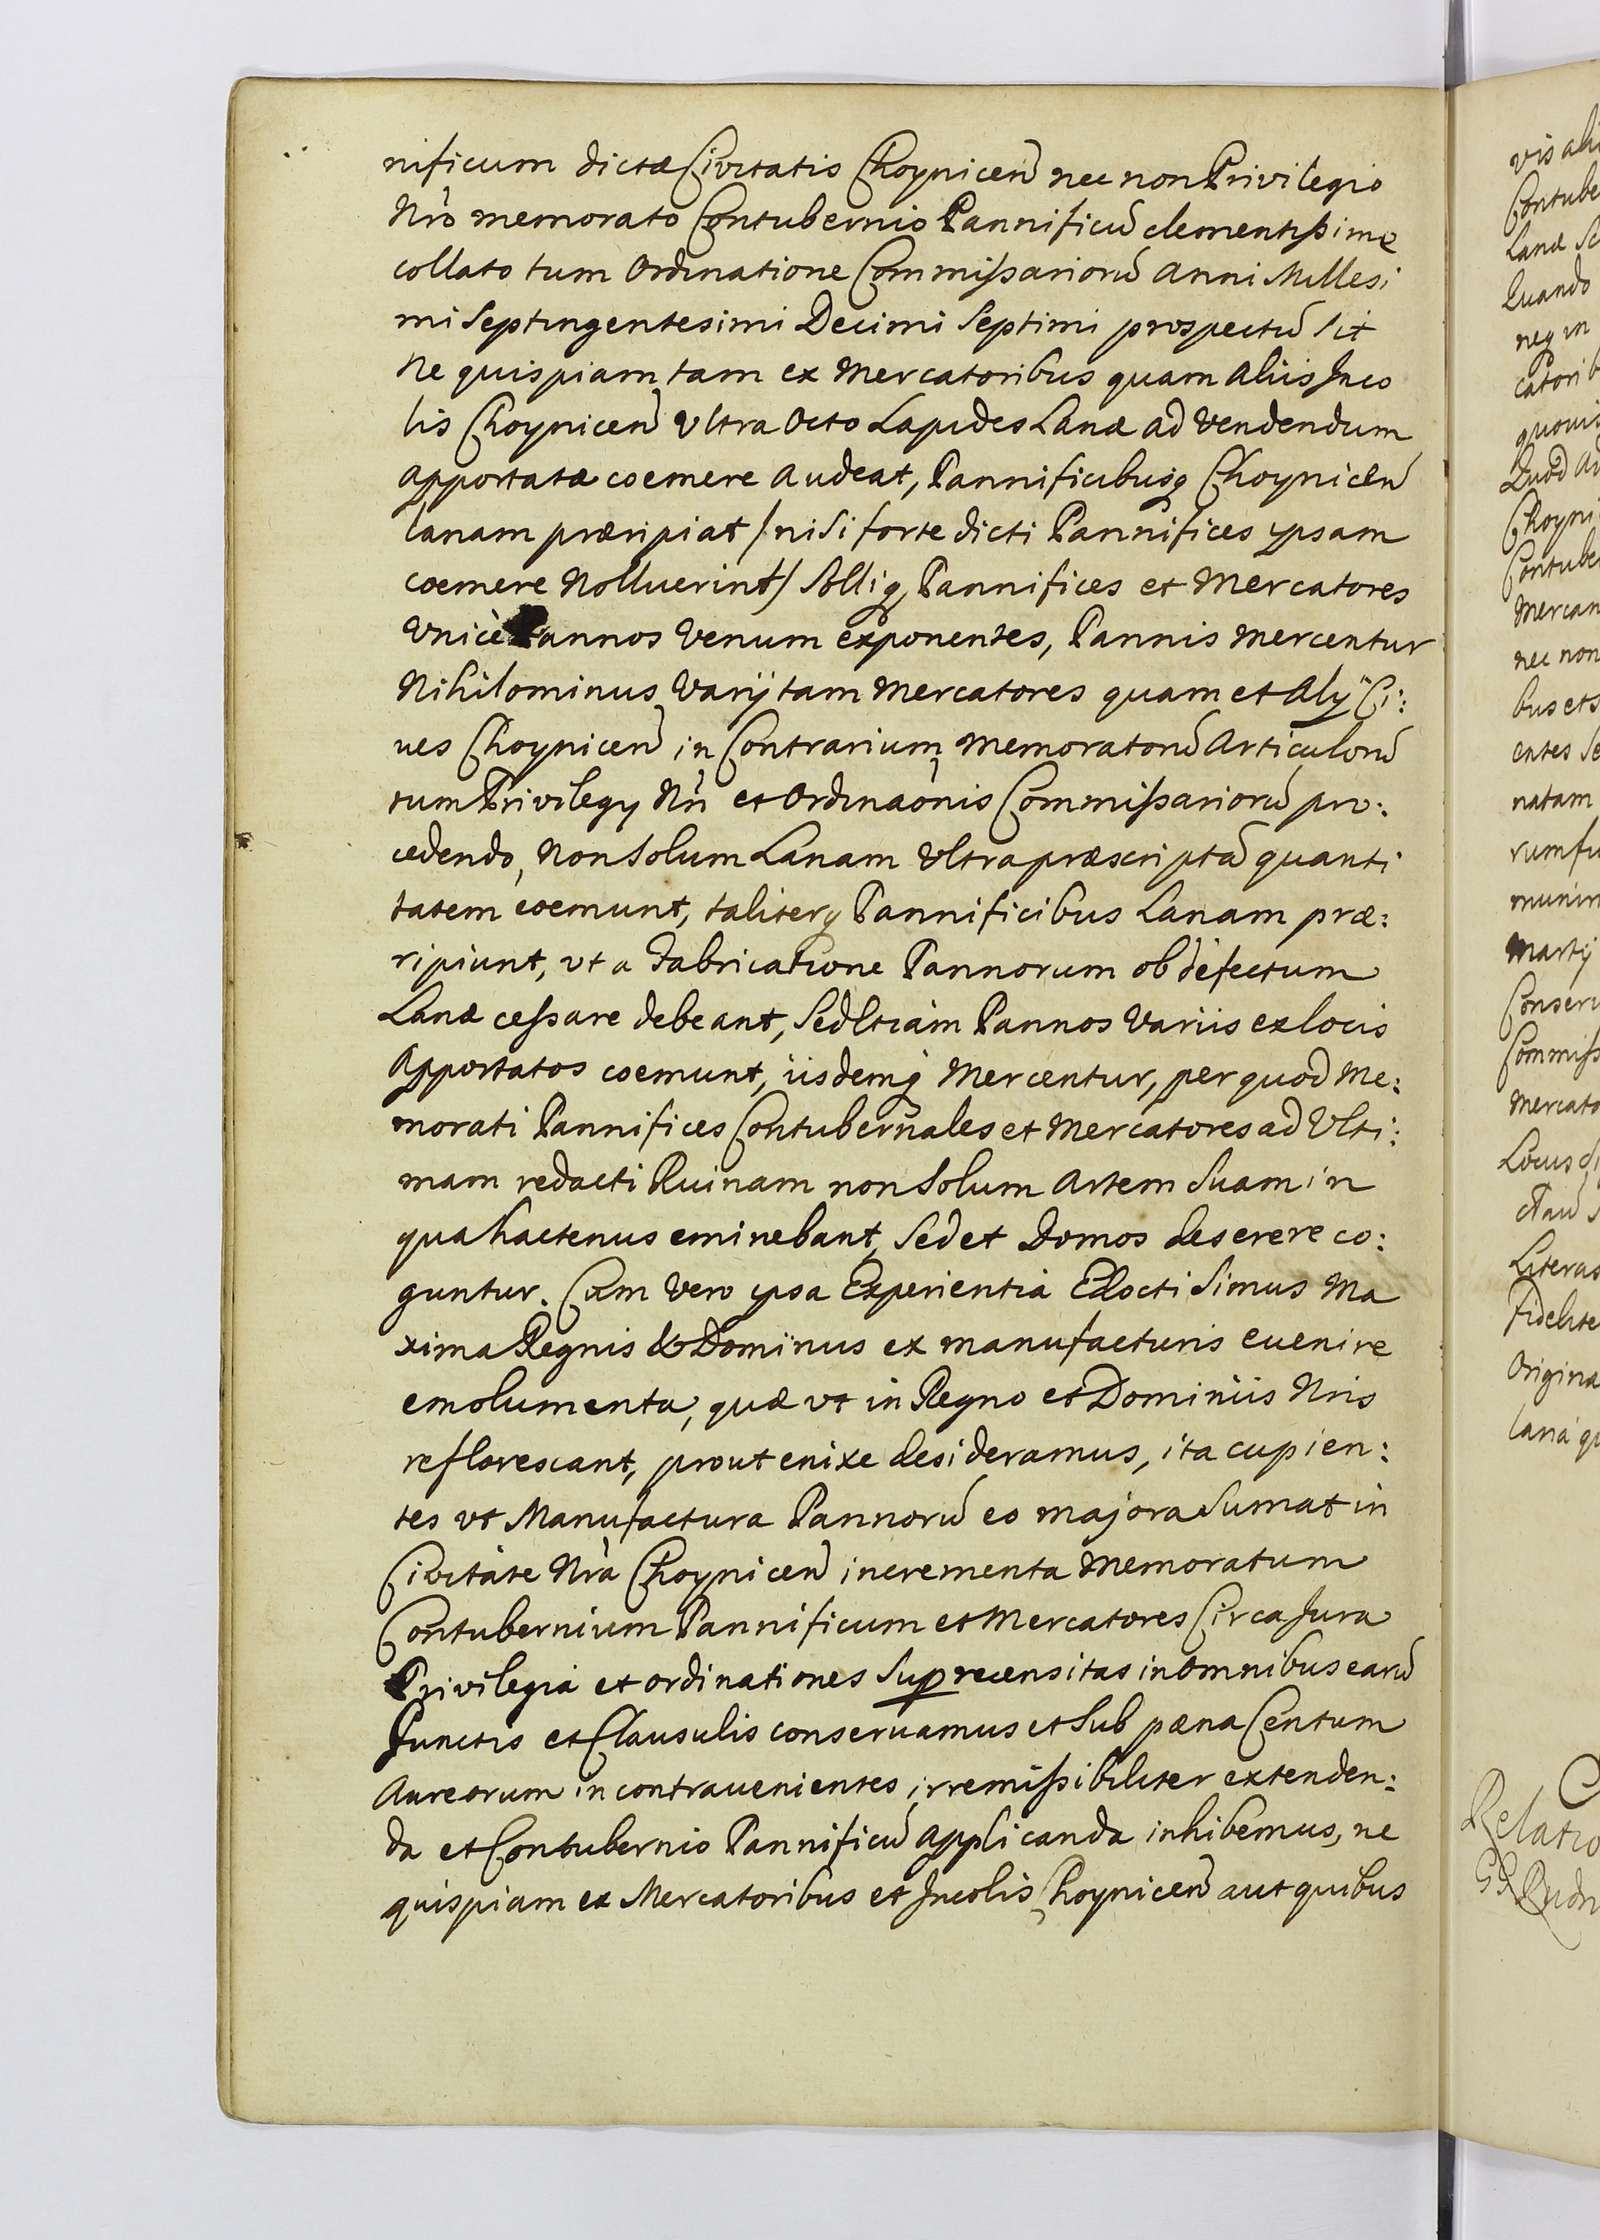 nificum dictæ Civitatis Choynicen̄ nec non Privilegio
Nr̄o memorato Contubernio Pannificū clementissime
collato tum Ordinatione Commissariorū Anni Millesi
mi Septingentesimi Decimi Septimi prospectū sit
Ne quispiam tam ex Mercatoribus quam Aliis Inco
lis Choynicen̄ Ultra Octo Lapides Lanæ ad vendendum
Apportatæ coemere Audeat, Pannificibusq Choynicen̄
lanam præripiat /: nisi forte dicti Pannifices ypsam
coemere Nolluerint/ Solliq Pannifices et Mercatores
Unicè Pannos Venum exponentes, Pannis mercentur
Nihilominus Varij tam Mercatores quam et Alij Ci:
ues Choynicen̄ in Contrarium memoratorū Articulorū
tum Privilegy Nr̄i et Ordinaōnis Commissariorū pro:
cedendo, Non Solum Lanam Ultra præscriptā quanti
tatem coemunt, taliterq Pannificibus Lanam præ:
ripiunt, ut a Fabricatione Pannorum ob defectum
Lanæ cessare debeant, Sed Etiam Pannos Variis ex locis
Apportatos coemunt, iisdemq Mercentur, per quod Me:
morati Pannifices Contubernales et Mercatores ad Ulti:
mam redacti Ruinam non Solum Artem Suam in
qua hactenus eminebant, Sed et Domos deserere co:
guntur. Cum Vero ypsa Experientia Edocti Simus Ma
xima Regnis & Dominus ex manufacturis euenire
emolumenta, quæ ut in Regno et Dominiis Nr̄is
reflorescant, prout enixe desideramus, ita cupien:
tes ut Manufactura Pannorū eo majora Sumat in
Civitate Nr̄a Choynicen̄ incrementa Memoratum
Contubernium Pannificum et Mercatores Circa Jura
Privilegia et ordinationes Sup recensitas in Omnibus earū
Punctis et Clausulis conseruamus et Sub pæna Centum
Aureorum in contrauenientes irremissibiliter extenden:
da et Contubernio Pannificū applicanda inhibemus, ne
quispiam ex Mercatoribus et Incolis Choynicen̄ aut quibus
vis ali
Contube
Lanæ
Quando
neq in
catorib
quouis
Quod
Choyni
Contube
Mercan
nec non
bus et
entes
natam
munim
Martij
Conseru
Commiss
Mercato
Locus
Literas
Fidelite
Origina
Relatio